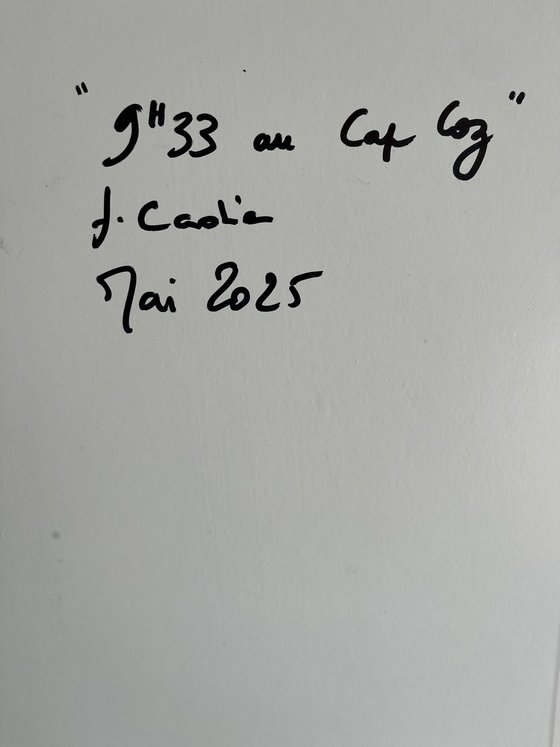 "9H33 au Cap Coz"
Mai 2025